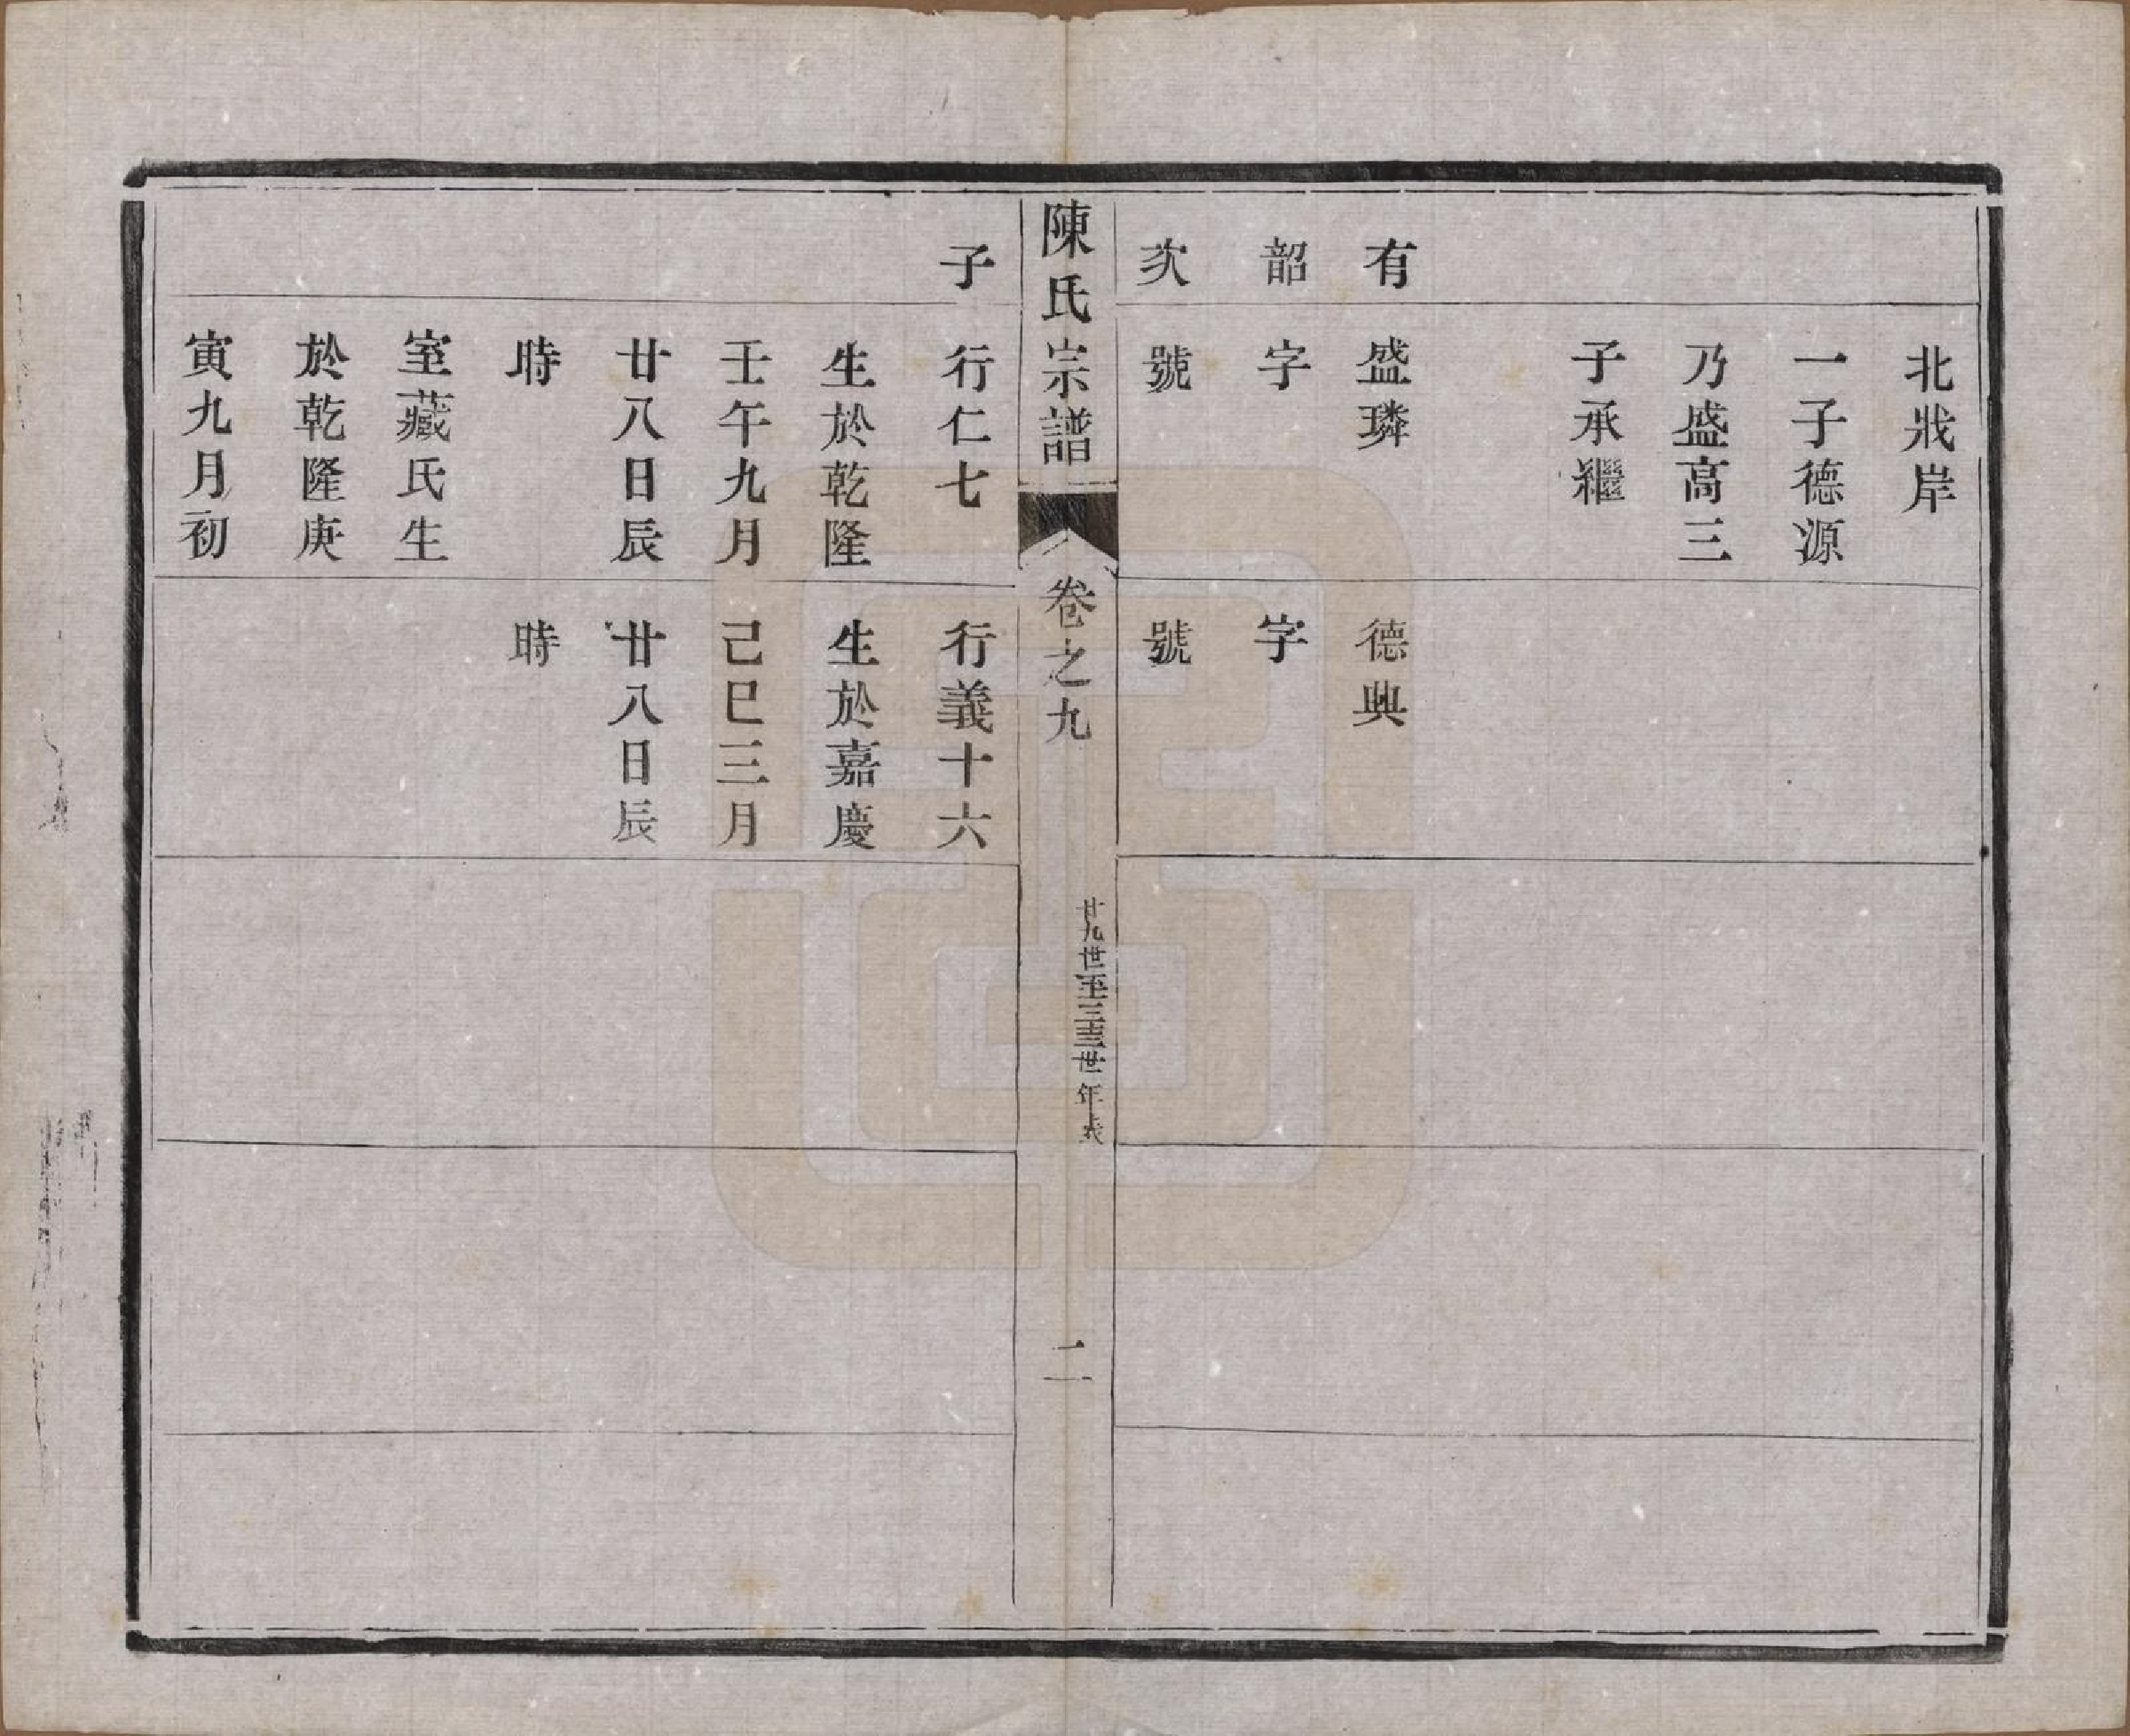 北戕岸
一子德源
乃盛高三
子承繼
有
韶
次
盛璘
字
號
德典
字
號
陳氏宗譜
卷之九
廿九世至三十三世年表
二
子
行仁七
生於乾隆
壬午九月
廿八日辰
時
室藏氏生
於乾隆庚
寅九月初
行義十六
生於嘉慶
己巳三月
廿八日辰
時